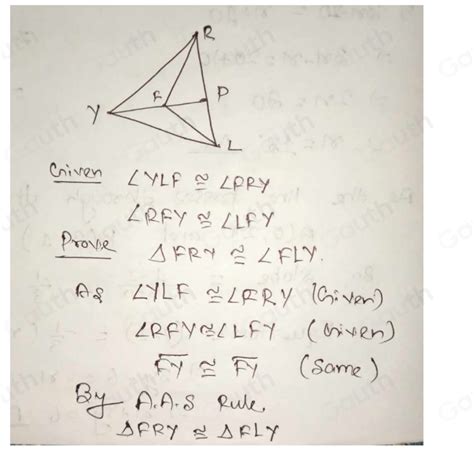 R
F
P
Y
L
Given ∠YLF ≅ ∠FRY
∠RFY ≅ ∠LFY
Prove △FRY ≅ ∠FLY.
As ∠YLF ≅ ∠FRY (Given)
∠RFY ≅ ∠LFY (Given)
FY ≅ FY (Same)
By A.A.S Rule,
△FRY ≅ △FLY